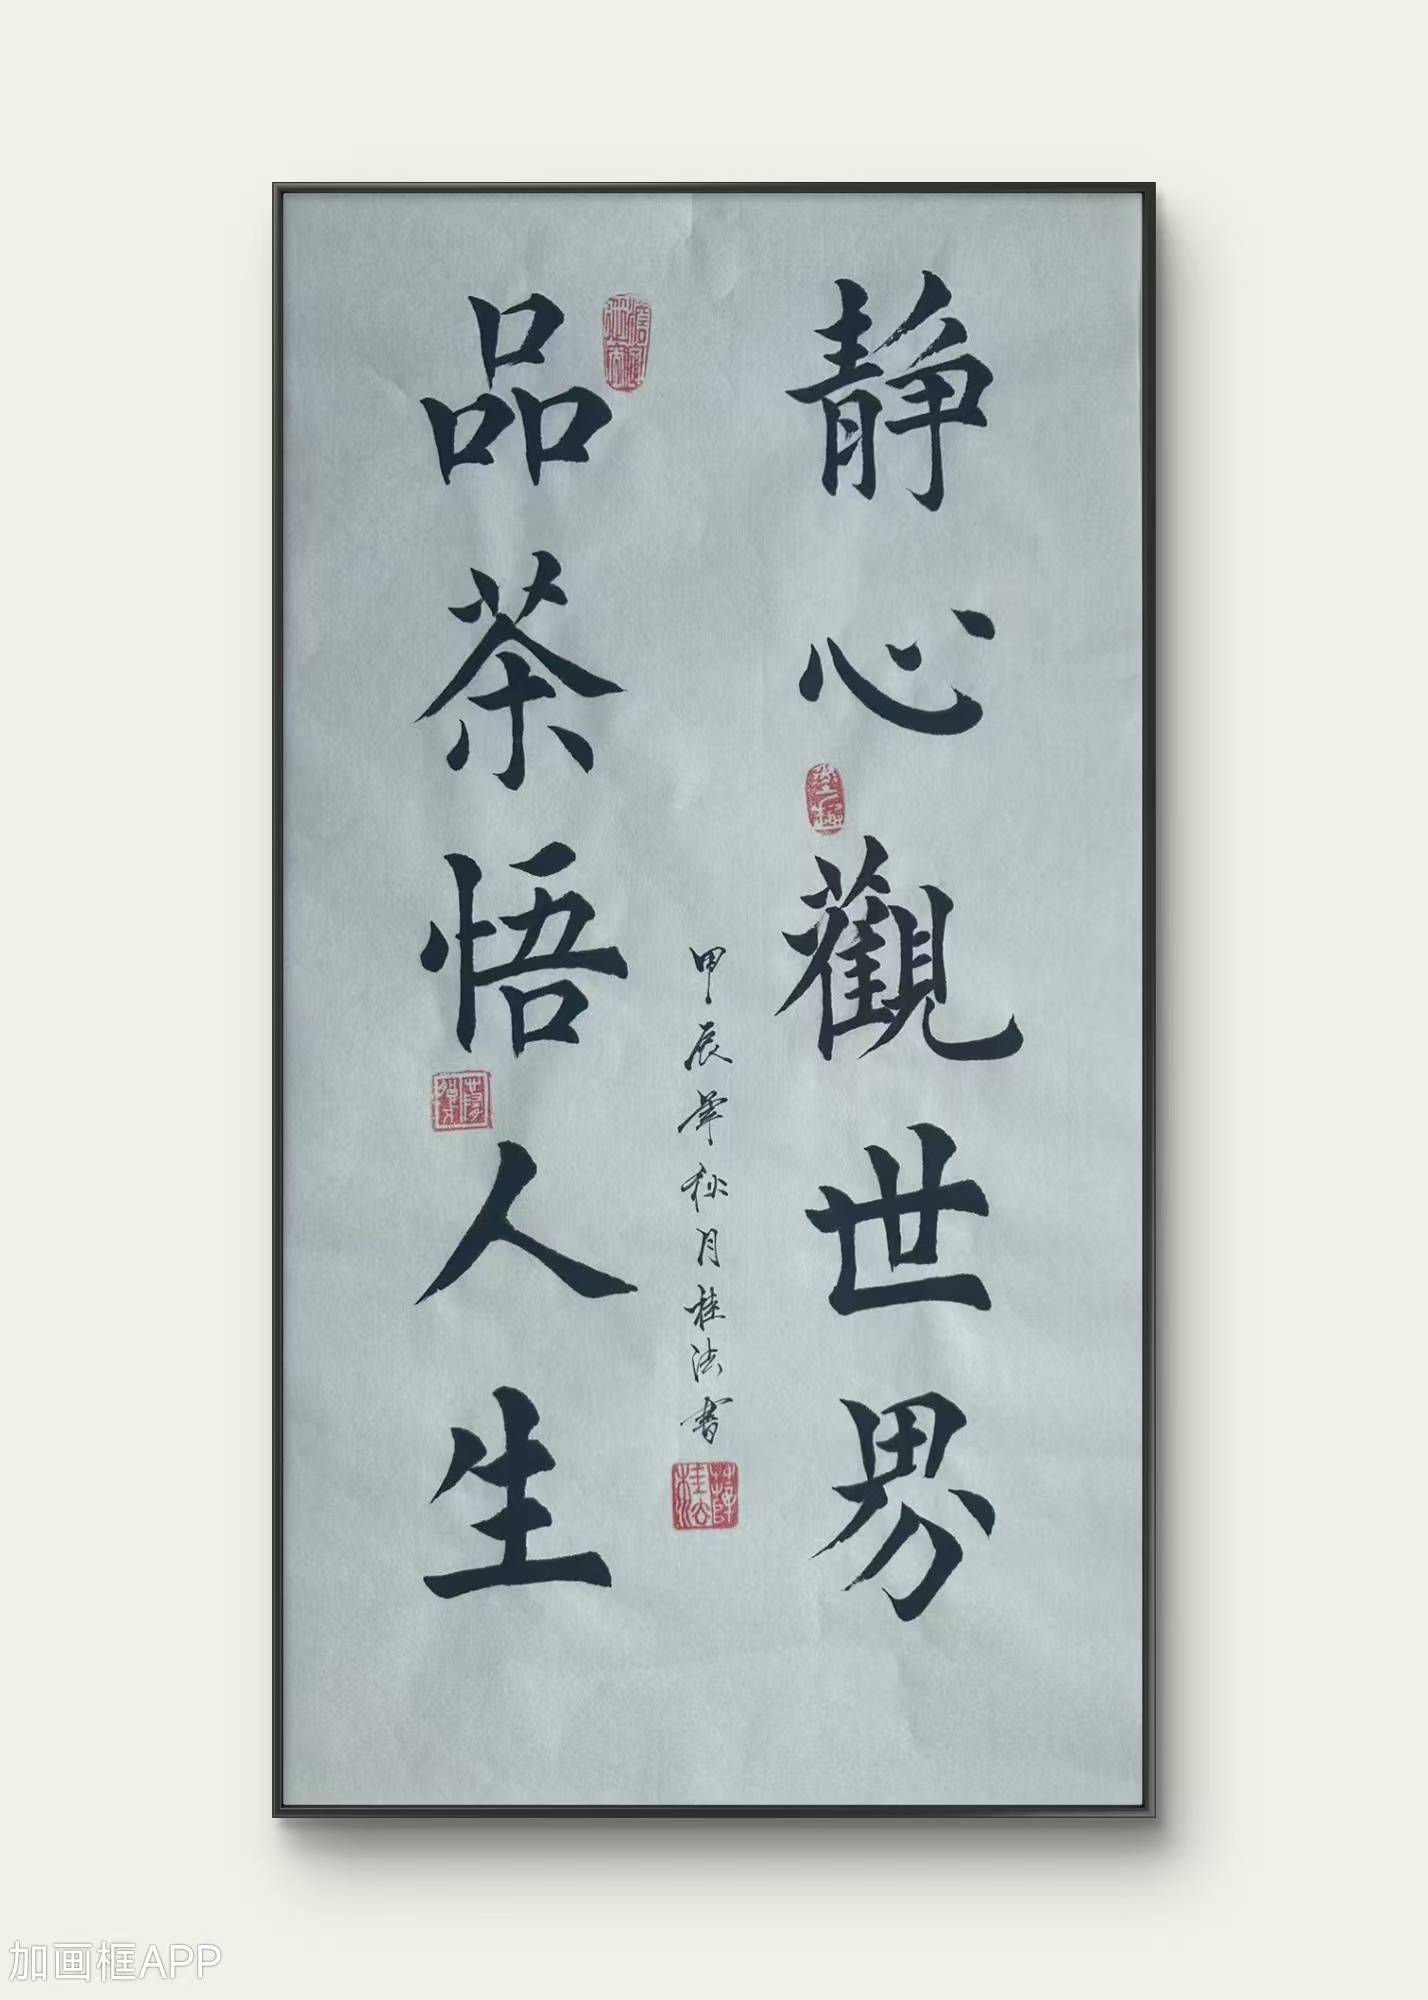 静心觀世界
甲辰年秋月桂法書
品茶悟人生
加画框APP